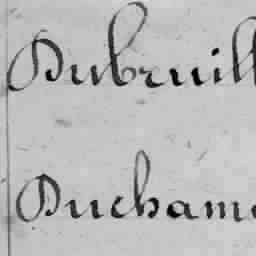 Dubruill
Duchame